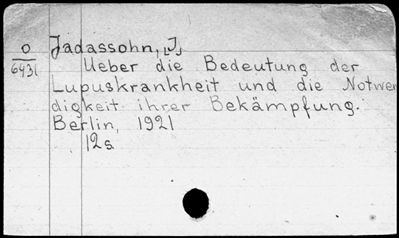 O Jadassohn, [J]
6431 Ueber die Bedeutung der
Lupuskrankheit und die Notwen
digkeit ihrer Bekämpfung.
Berlin, 1921
12s